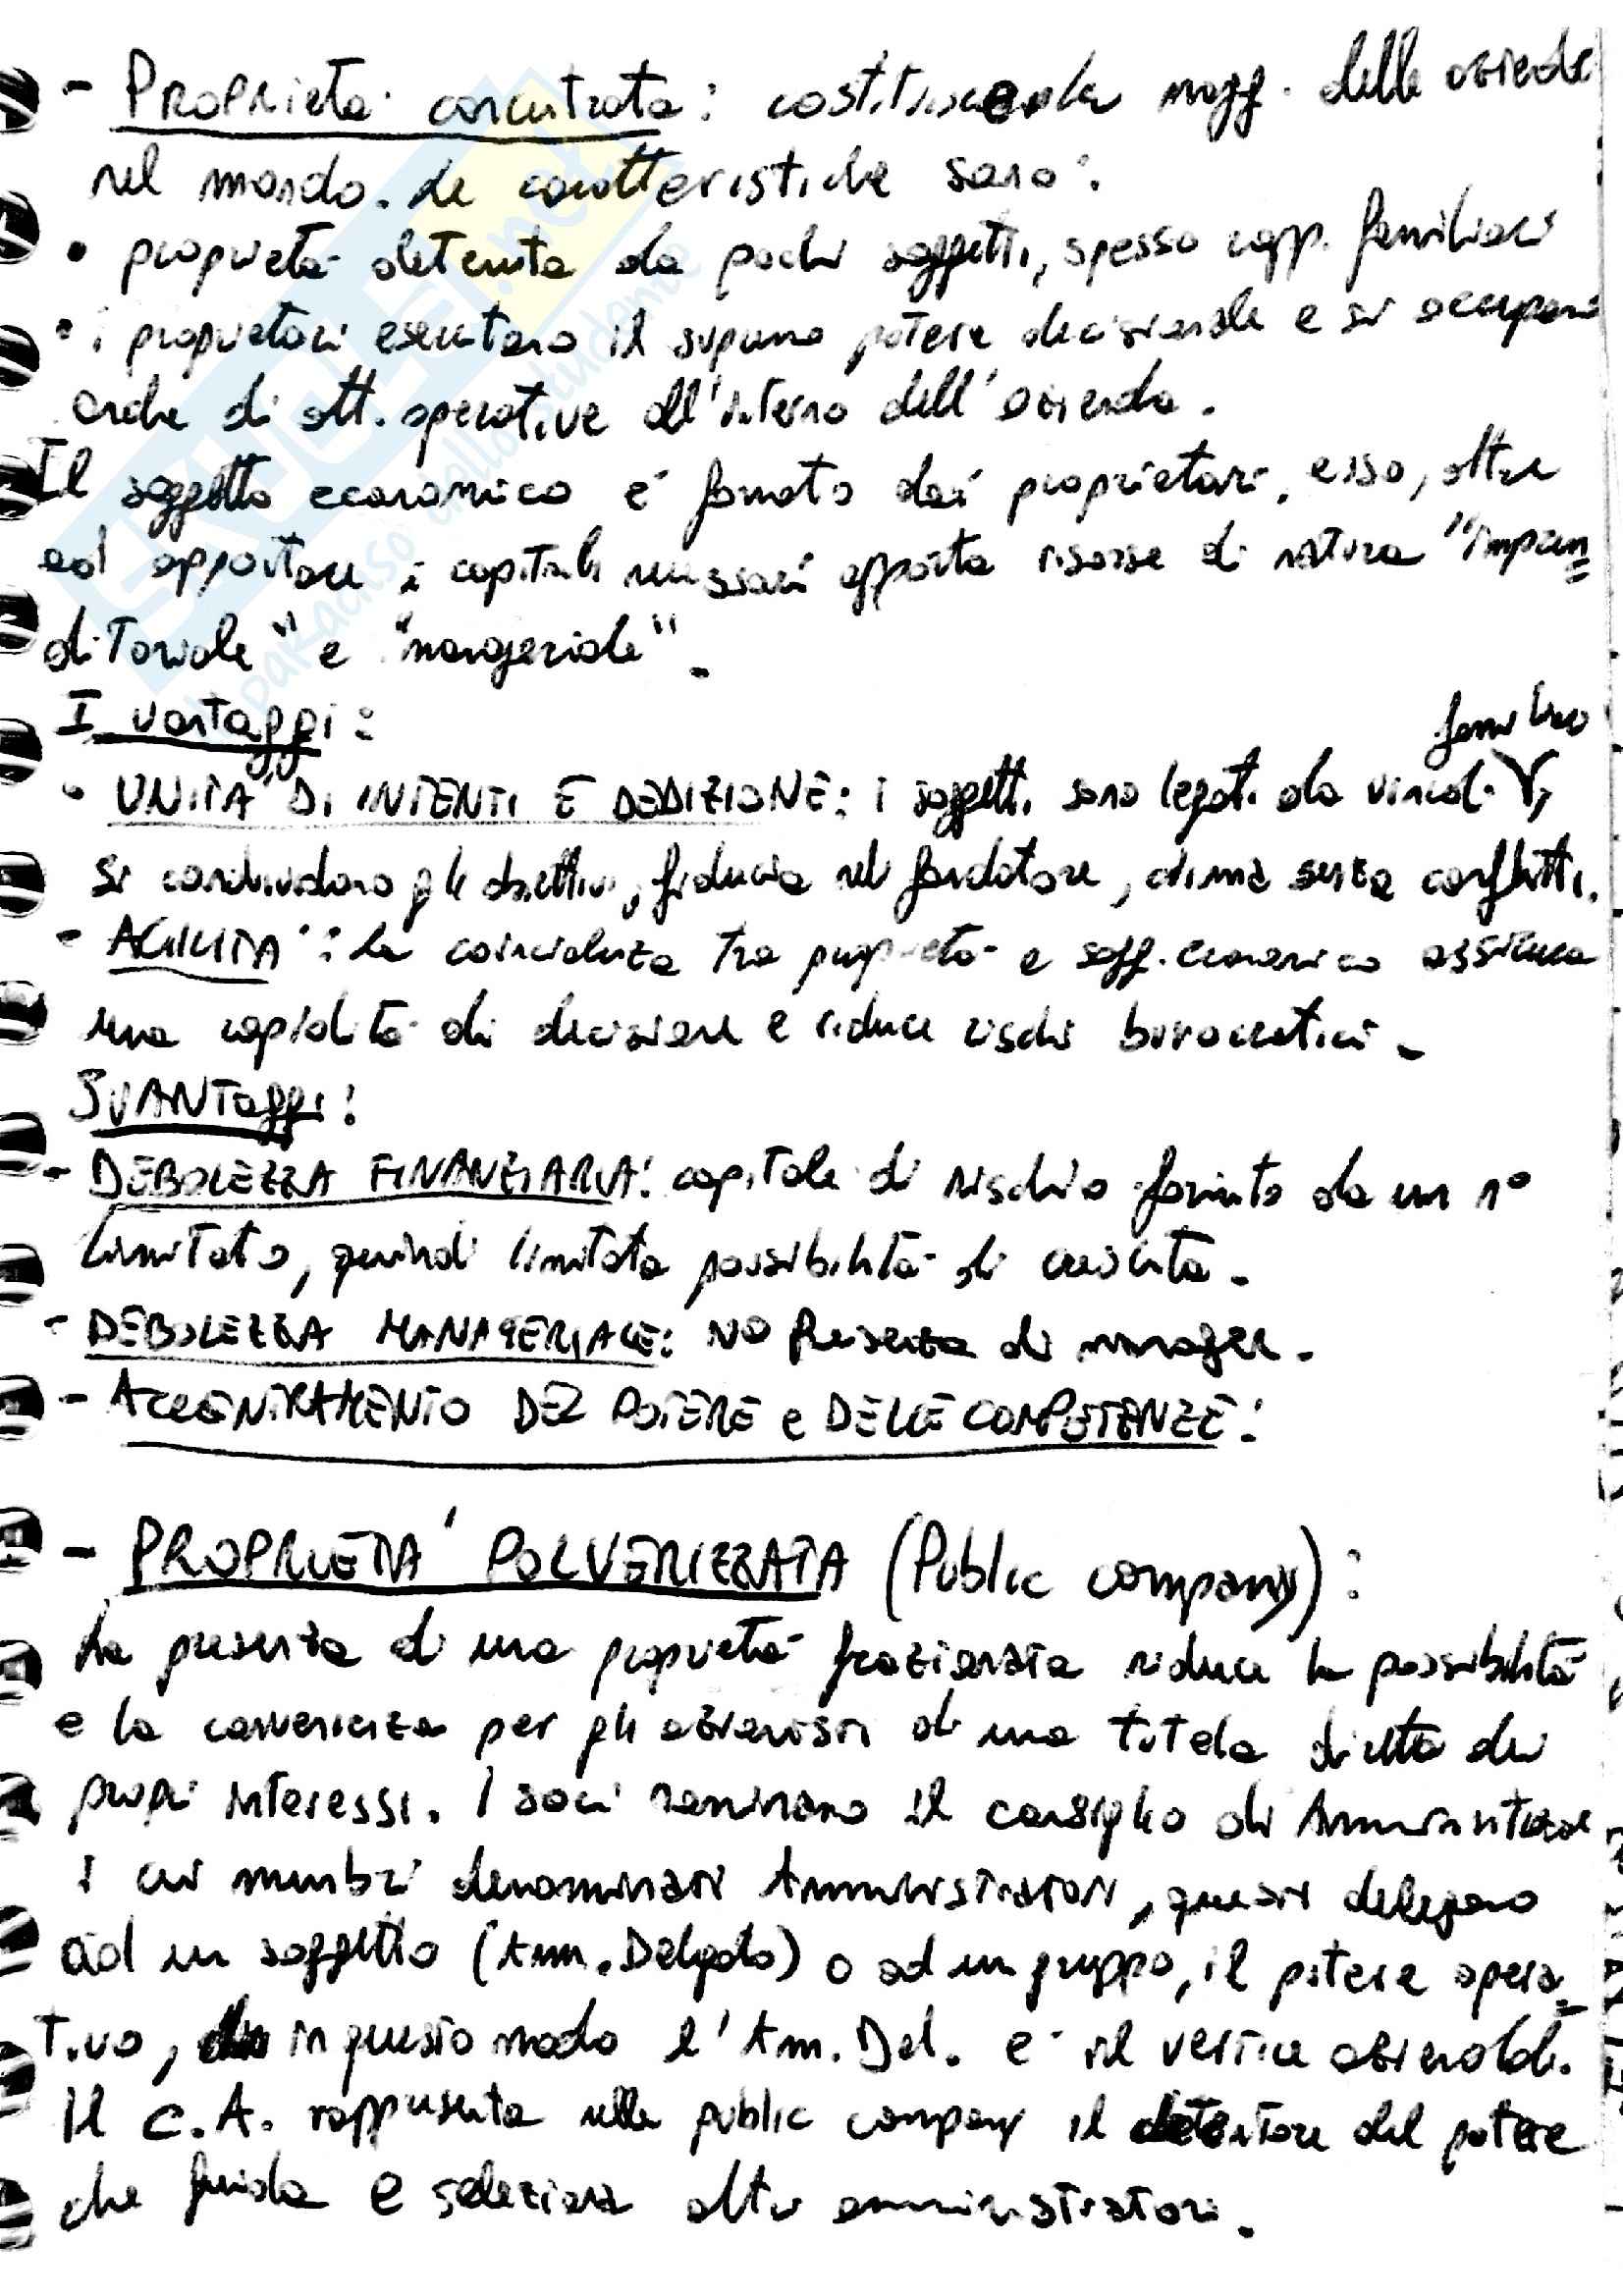 - Proprietà concentrata: costituisce la magg. delle aziende
nel mondo. Le caratteristiche sono:
• proprietà detenuta da pochi soggetti, spesso rapp. familiari
• i proprietari esercitano il supremo potere decisionale e si occupano
anche di att. operative all'interno dell'azienda.
Il soggetto economico è formato dai proprietari, esso, oltre
ad apportare i capitali necessari apporta risorse di natura "impren=
ditoriale" e "manageriale".
I vantaggi:
familiare
- UNITA' DI INTENTI E DEDIZIONE: i soggetti sono legati da vincoli γ,
si condividono gli obiettivi, fiducia nel fondatore, clima senza conflitti.
- AGILITA': la coincidenza tra proprietà e sogg. economico assicura
una rapidità di decisione e riduce rischi burocratici.
SVANTaggi:
- DEBOLEZZA FINANZIARIA: capitale di rischio fornito da un n°
limitato, quindi limitata possibilità di crescita.
- DEBOLEZZA MANAGERIALE: NO Presenza di manager.
- ACCENTRAMENTO DEL POTERE e DELLE COMPETENZE:
- PROPRIETA' POLVERIZZATA (Public company):
La presenza di una proprietà frazionata riduce la possibilità
e la convenienza per gli azionisti di una tutela diretta dei
propri interessi. I soci nominano il consiglio di Amministrazione
i cui membri denominati Amministratori, questi delegano
ad un soggetto (Amm. Delegato) o ad un gruppo, il potere opera=
tivo, in questo modo l'Am. Del. è il vertice aziendale.
Il C.A. rappresenta nella public company il detentore del potere
che guida e seleziona altri amministratori.
SKUOLA.net
il paradiso dello studente